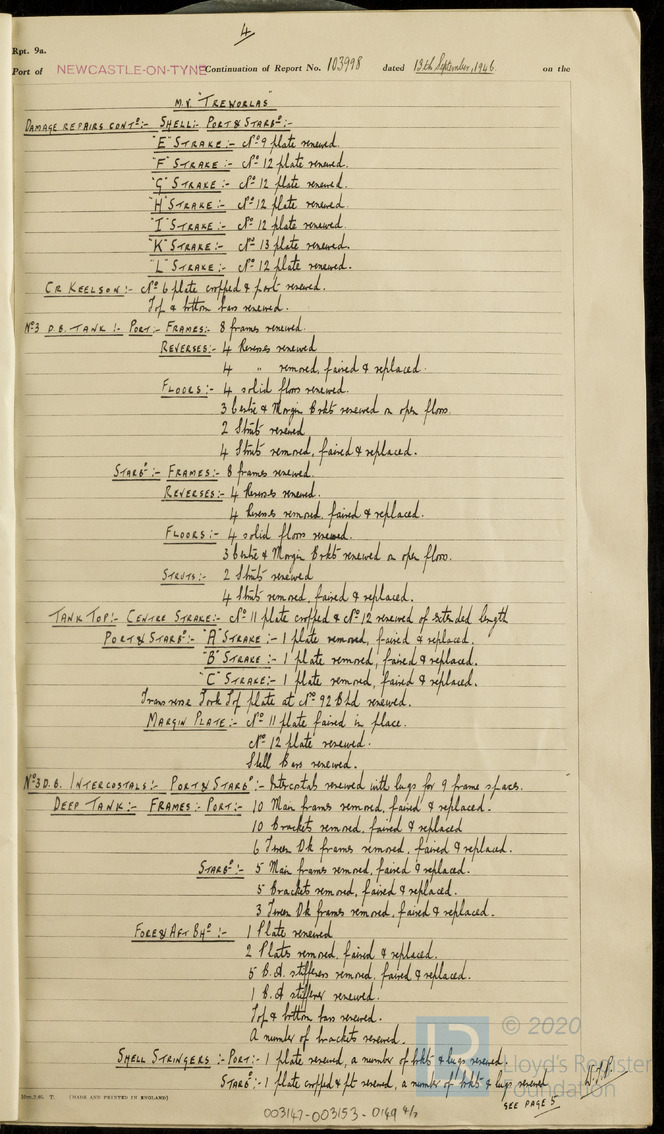 4
Rpt. 9a.
Port of NEWCASTLE-ON-TYNE Continuation of Report No. 103998 dated 13th September, 1946. on the
M.V. "TREWORLAS"
DAMAGE REPAIRS CONTD:- SHELL:- PORT & STARBD:-
"E" STRAKE:- No 9 plate renewed.
"F" STRAKE:- No 12 plate renewed.
"G" STRAKE:- No 12 plate renewed.
"H" STRAKE:- No 12 plate renewed.
"I" STRAKE:- No 12 plate renewed.
"K" STRAKE:- No 13 plate renewed.
"L" STRAKE:- No 12 plate renewed.
CR KEELSON:- No 6 plate cropped & part renewed.
Top & bottom bars renewed.
No 3 D.B. TANK:- PORT:- FRAMES:- 8 frames renewed.
REVERSES:- 4 Reverses renewed
4 " removed, faired & replaced.
FLOORS:- 4 solid floors renewed.
3 Centre & Margin Brkts renewed on open floors.
2 Struts renewed
4 Struts removed, faired & replaced.
STARBD:- FRAMES:- 8 frames renewed.
REVERSES:- 4 Reverses renewed.
4 Reverses removed, faired & replaced.
FLOORS:- 4 solid floors renewed.
3 Centre & Margin Brkts renewed on open floors.
STRUTS:- 2 Struts renewed
4 Struts removed, faired & replaced.
TANK TOP:- CENTRE STRAKE:- No 11 plate cropped & No 12 renewed of extended length
PORT & STARBD:- "A" STRAKE:- 1 plate removed, faired & replaced.
"B" STRAKE:- 1 plate removed, faired & replaced.
"C" STRAKE:- 1 plate removed, faired & replaced.
Transverse Tank Top plate at No 92 Bhd renewed.
MARGIN PLATE:- No 11 plate faired in place.
No 12 plate renewed.
Shell Bars renewed.
No 3 D.B. INTERCOSTALS:- PORT & STARBD:- Intercostals renewed with lugs for 9 frame spaces.
DEEP TANK:- FRAMES:- PORT:- 10 Main frames removed, faired & replaced.
10 Brackets removed, faired & replaced
6 Tween Dk frames removed, faired & replaced.
STARBD:- 5 Main frames removed, faired & replaced.
5 Brackets removed, faired & replaced.
3 Tween Dk frames removed, faired & replaced.
FORE & AFT BHD:- 1 Plate renewed
2 Plates removed, faired & replaced.
5 B.A. stiffeners removed, faired & replaced.
1 B.A. stiffener renewed.
Top & bottom bars renewed.
A number of brackets renewed.
SHELL STRINGERS:- PORT:- 1 plate renewed, a number of brkts & lugs renewed.
STARBD:- 1 plate cropped & pt renewed, a number of brkts & lugs renewed
SEE PAGE 5
10m.2.46. T. (MADE AND PRINTED IN ENGLAND)
003147-003153-0149 4/7
© 2020
Lloyd's Register
Foundation